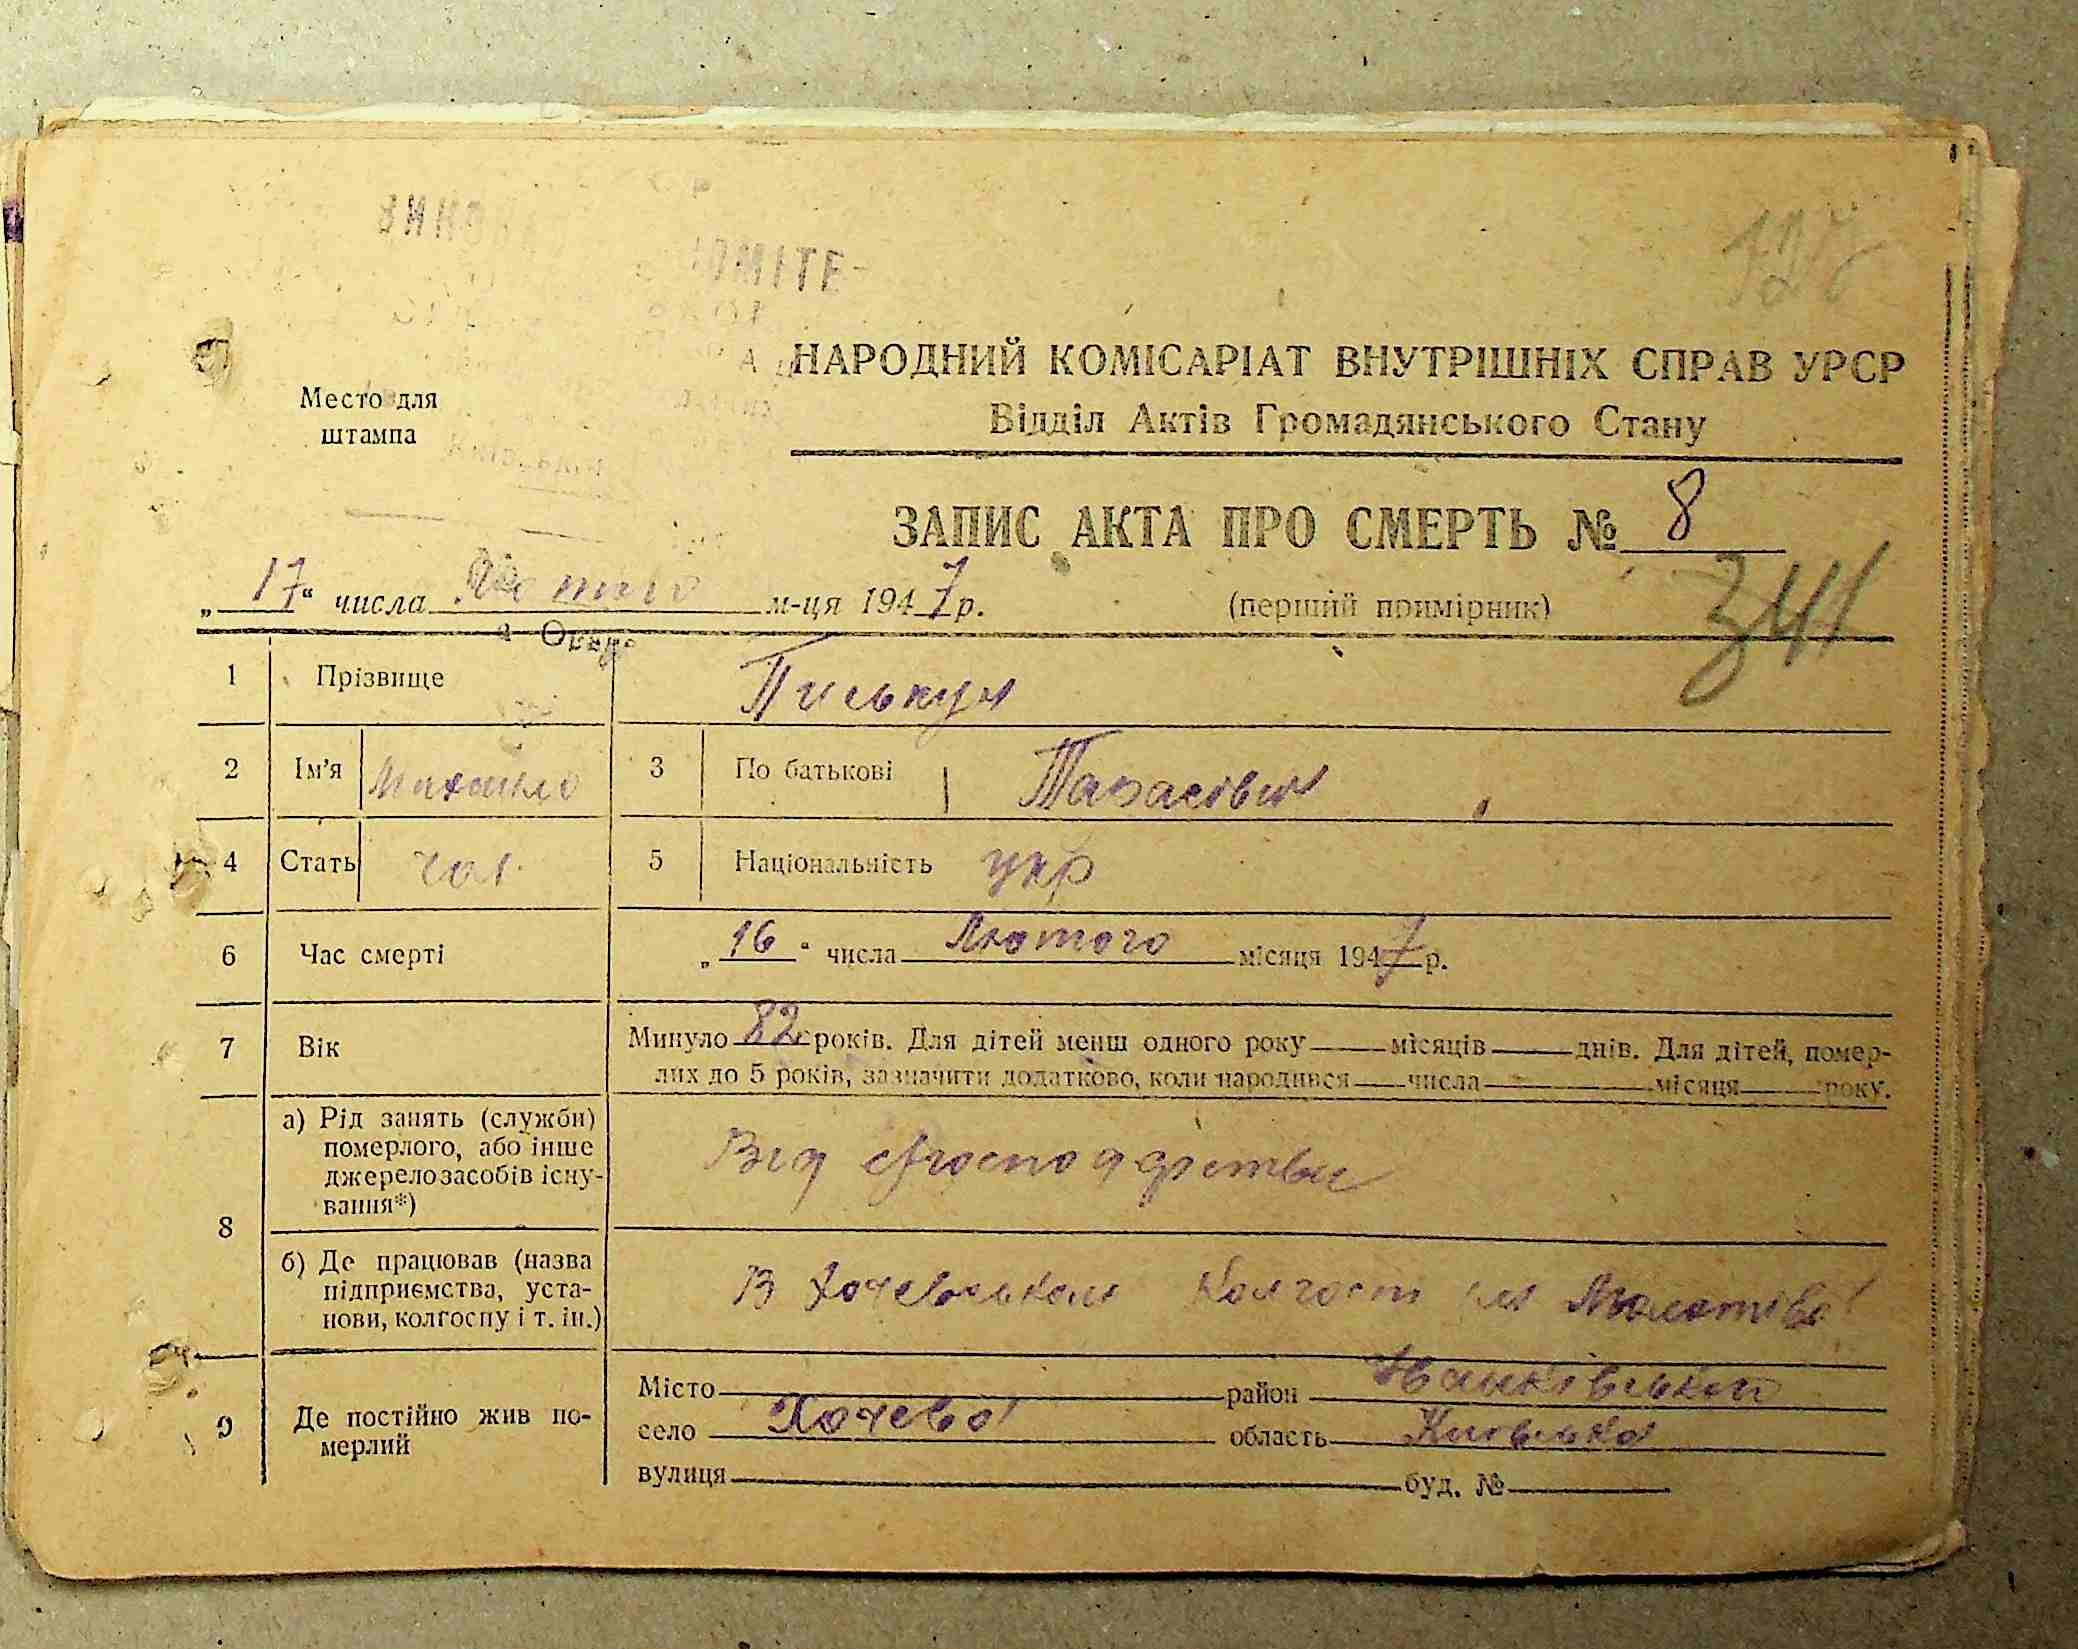 127
Место для
штампа
НАРОДНИЙ КОМІСАРІАТ ВНУТРІШНІХ СПРАВ УРСР
Відділ Актів Громадянського Стану
ЗАПИС АКТА ПРО СМЕРТЬ № 8
„17“ числа Лютого м-ця 1947 р. (перший примірник)
341
1 Прізвище Піськун
2 Ім'я Михайло 3 По батькові Тарасівич
4 Стать чол. 5 Національність укр
6 Час смерті „16“ числа Лютого місяця 1947 р.
7 Вік Минуло 82 років. Для дітей менш одного року місяців днів. Для дітей, помер-
лих до 5 років, зазначити додатково, коли народився числа місяця року.
8 а) Рід занять (служби)
померлого, або інше
джерело засобів існу-
вання*)
Від
б) Де працював (назва
підприємства, уста-
нови, колгоспу і т. ін.)
В Хочевськом Колгосп ім Молотіва
9 Де постійно жив по-
мерлий
Місто район Іванківський
село Хочева область Київська
вулиця буд. №